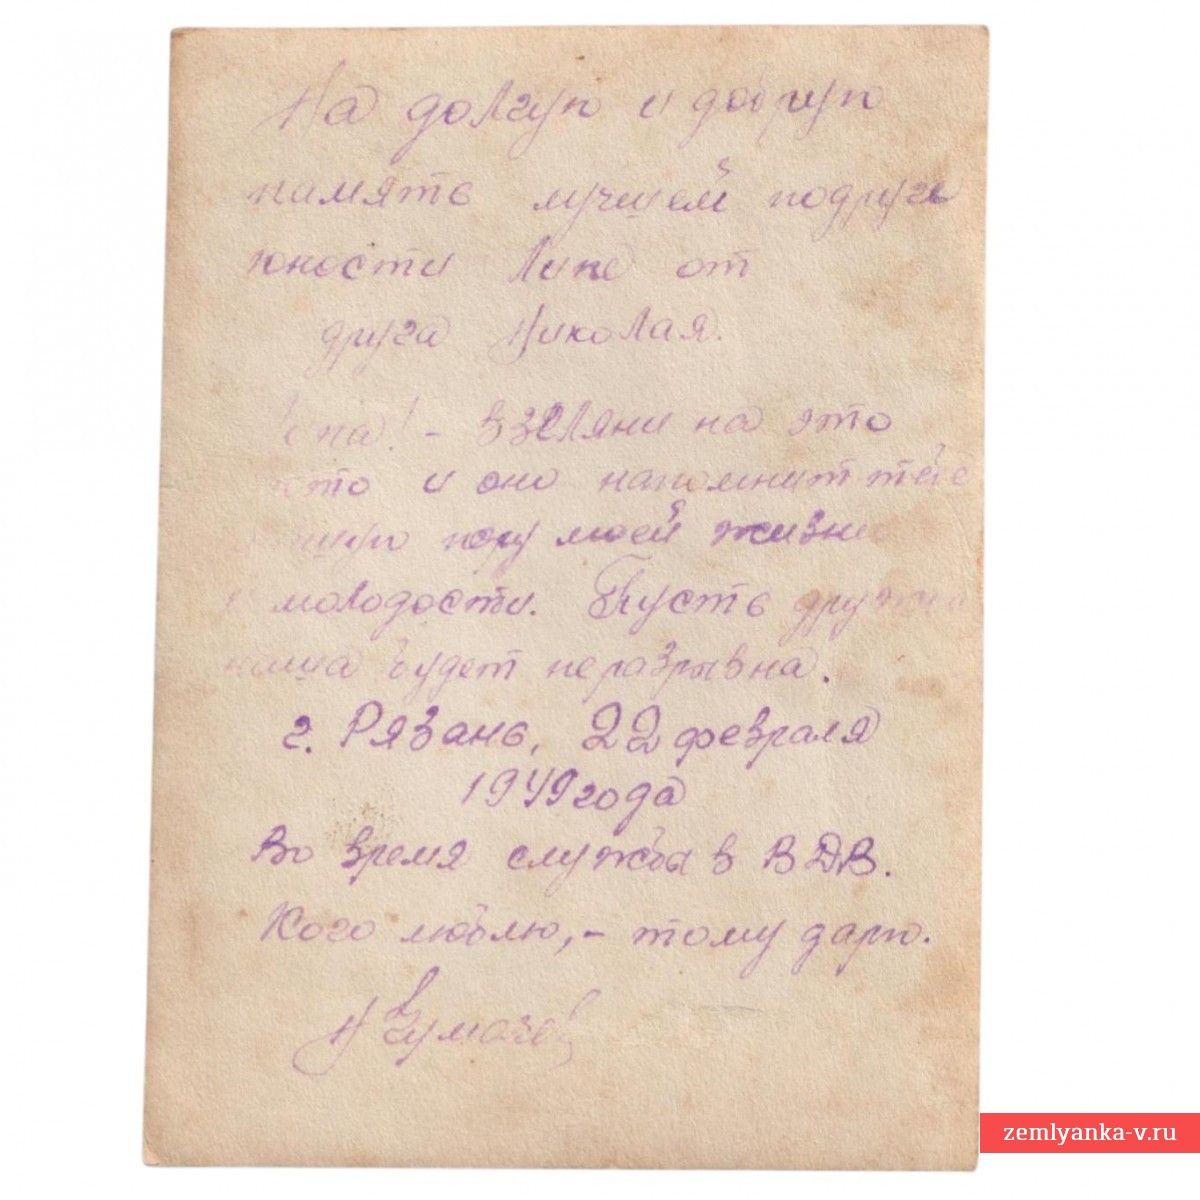 На долгую и добрую
память лучшей подруге
юности Лике от
друга Николая.
взгляни на это
и оно напомнит тебе
пору моей жизни
и молодости. Пусть дружба
наша будет неразрывна.
г. Рязань, 22 февраля
1949 года
Во время службы в ВДВ.
Кого люблю, - тому дарю.
zemlyanka-v.ru